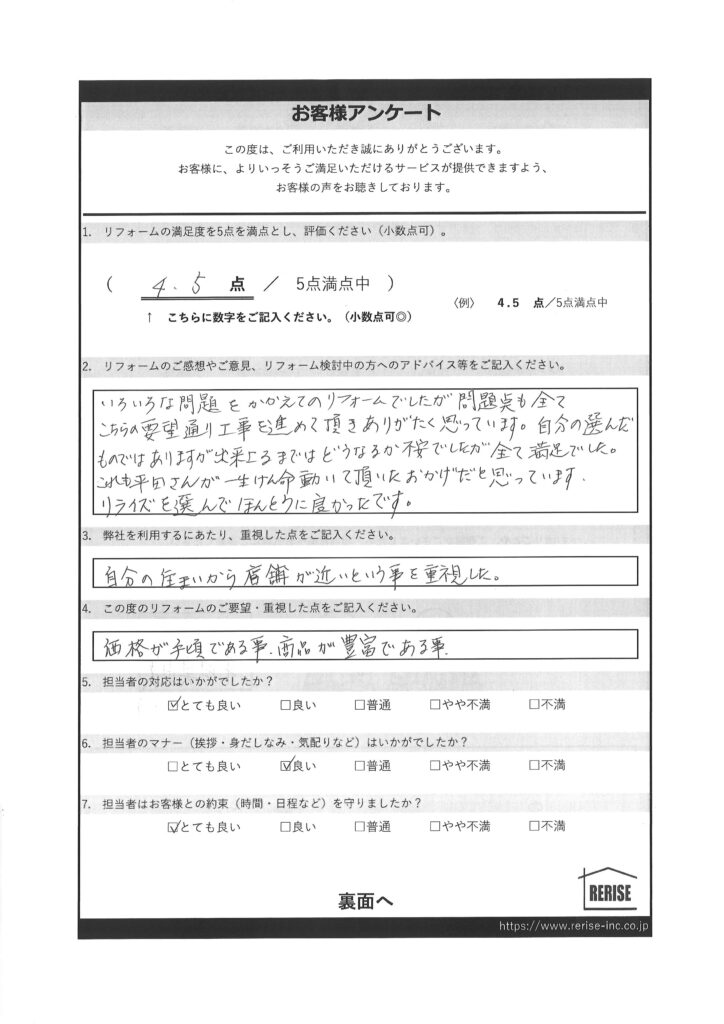 お客様アンケート
この度は、ご利用いただき誠にありがとうございます。
お客様に、よりいっそうご満足いただけるサービスが提供できますよう、
お客様の声をお聴きしております。
1. リフォームの満足度を5点を満点とし、評価ください（小数点可）。
（ 4.5 点 ／ 5点満点中 ）
〈例〉 4.5 点／5点満点中
↑ こちらに数字をご記入ください。（小数点可◎）
2. リフォームのご感想やご意見、リフォーム検討中の方へのアドバイス等をご記入ください。
いろいろな問題をかかえてのリフォームでしたが問題点も全て
こちらの要望通り工事を進めて頂きありがたく思っています。自分の選んだ
ものではありますが出来上るまではどうなるか不安でしたが全て満足でした。
これも平田さんが一生けん命動いて頂いたおかげだと思っています.
リライズを選んでほんとうに良かったです。
3. 弊社を利用するにあたり、重視した点をご記入ください。
自分の住まいから店舗が近いという事を重視した。
4. この度のリフォームのご要望・重視した点をご記入ください。
価格が手頃である事.商品が豊富である事.
5. 担当者の対応はいかがでしたか？
☑とても良い □良い □普通 □やや不満 □不満
6. 担当者のマナー（挨拶・身だしなみ・気配りなど）はいかがでしたか？
□とても良い ☑良い □普通 □やや不満 □不満
7. 担当者はお客様との約束（時間・日程など）を守りましたか？
☑とても良い □良い □普通 □やや不満 □不満
裏面へ
RERISE
https://www.rerise-inc.co.jp